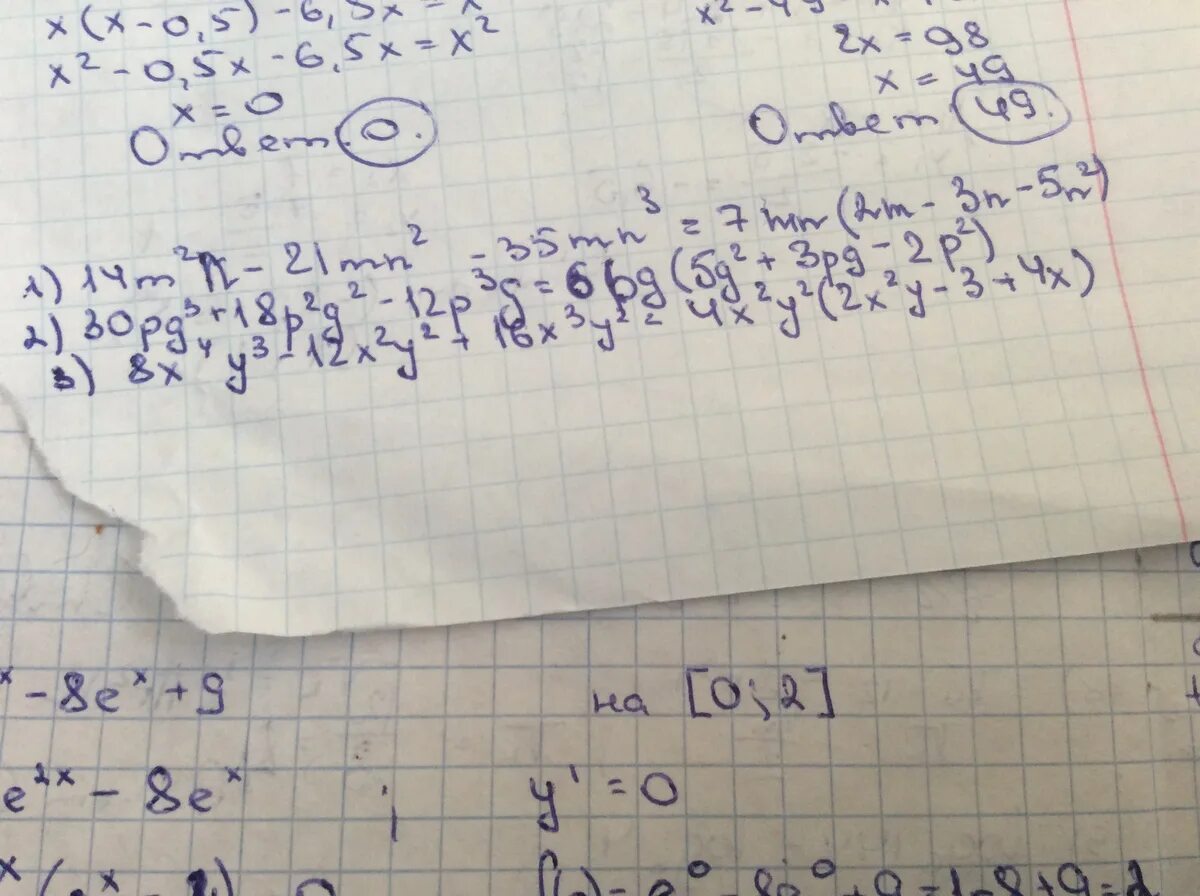 x(x-0,5)-6,5x=x
x²-0,5x-6,5x=x²
x=0
Ответ 0.
2x=98
x=49
Ответ 49.
1) 14m²n-21mn²-35mn³=7mn(2m-3n-5n²)
2) 30pg³+18p²g²-12p³g=6pg(5g²+3pg-2p²)
3) 8x⁴y³-12x²y²+16x³y²=4x²y²(2x²y-3+4x)
ˣ-8eˣ+9 на [0;2]
e²ˣ-8eˣ ; y'=0